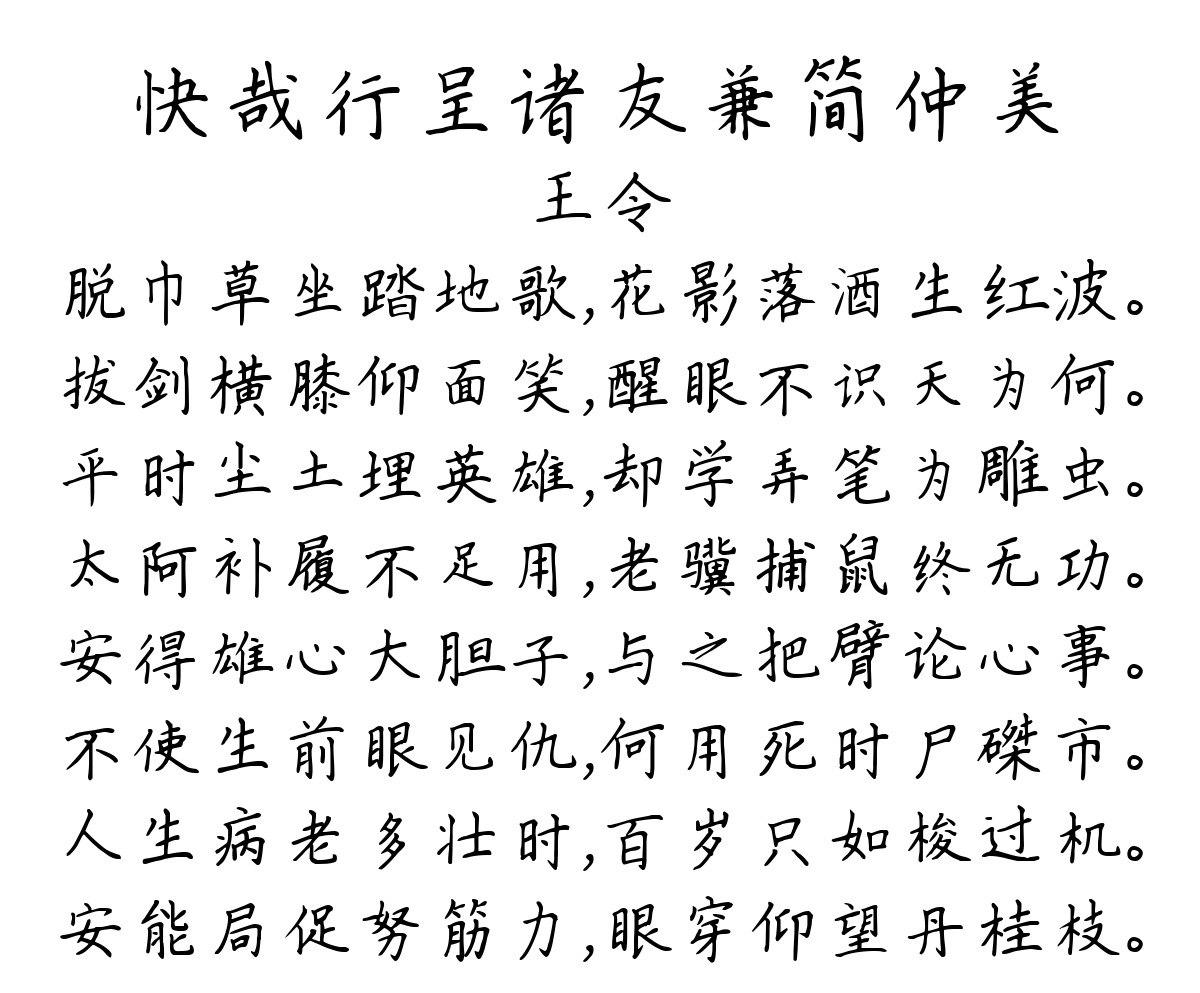 快哉行呈诸友兼简仲美
王令
脱巾草坐踏地歌,花影落酒生红波。
拔剑横膝仰面笑,醒眼不识天为何。
平时尘土埋英雄,却学弄笔为雕虫。
太阿补履不足用,老骥捕鼠终无功。
安得雄心大胆子,与之把臂论心事。
不使生前眼见仇,何用死时尸磔市。
人生病老多壮时,百岁只如梭过机。
安能局促努筋力,眼穿仰望丹桂枝。